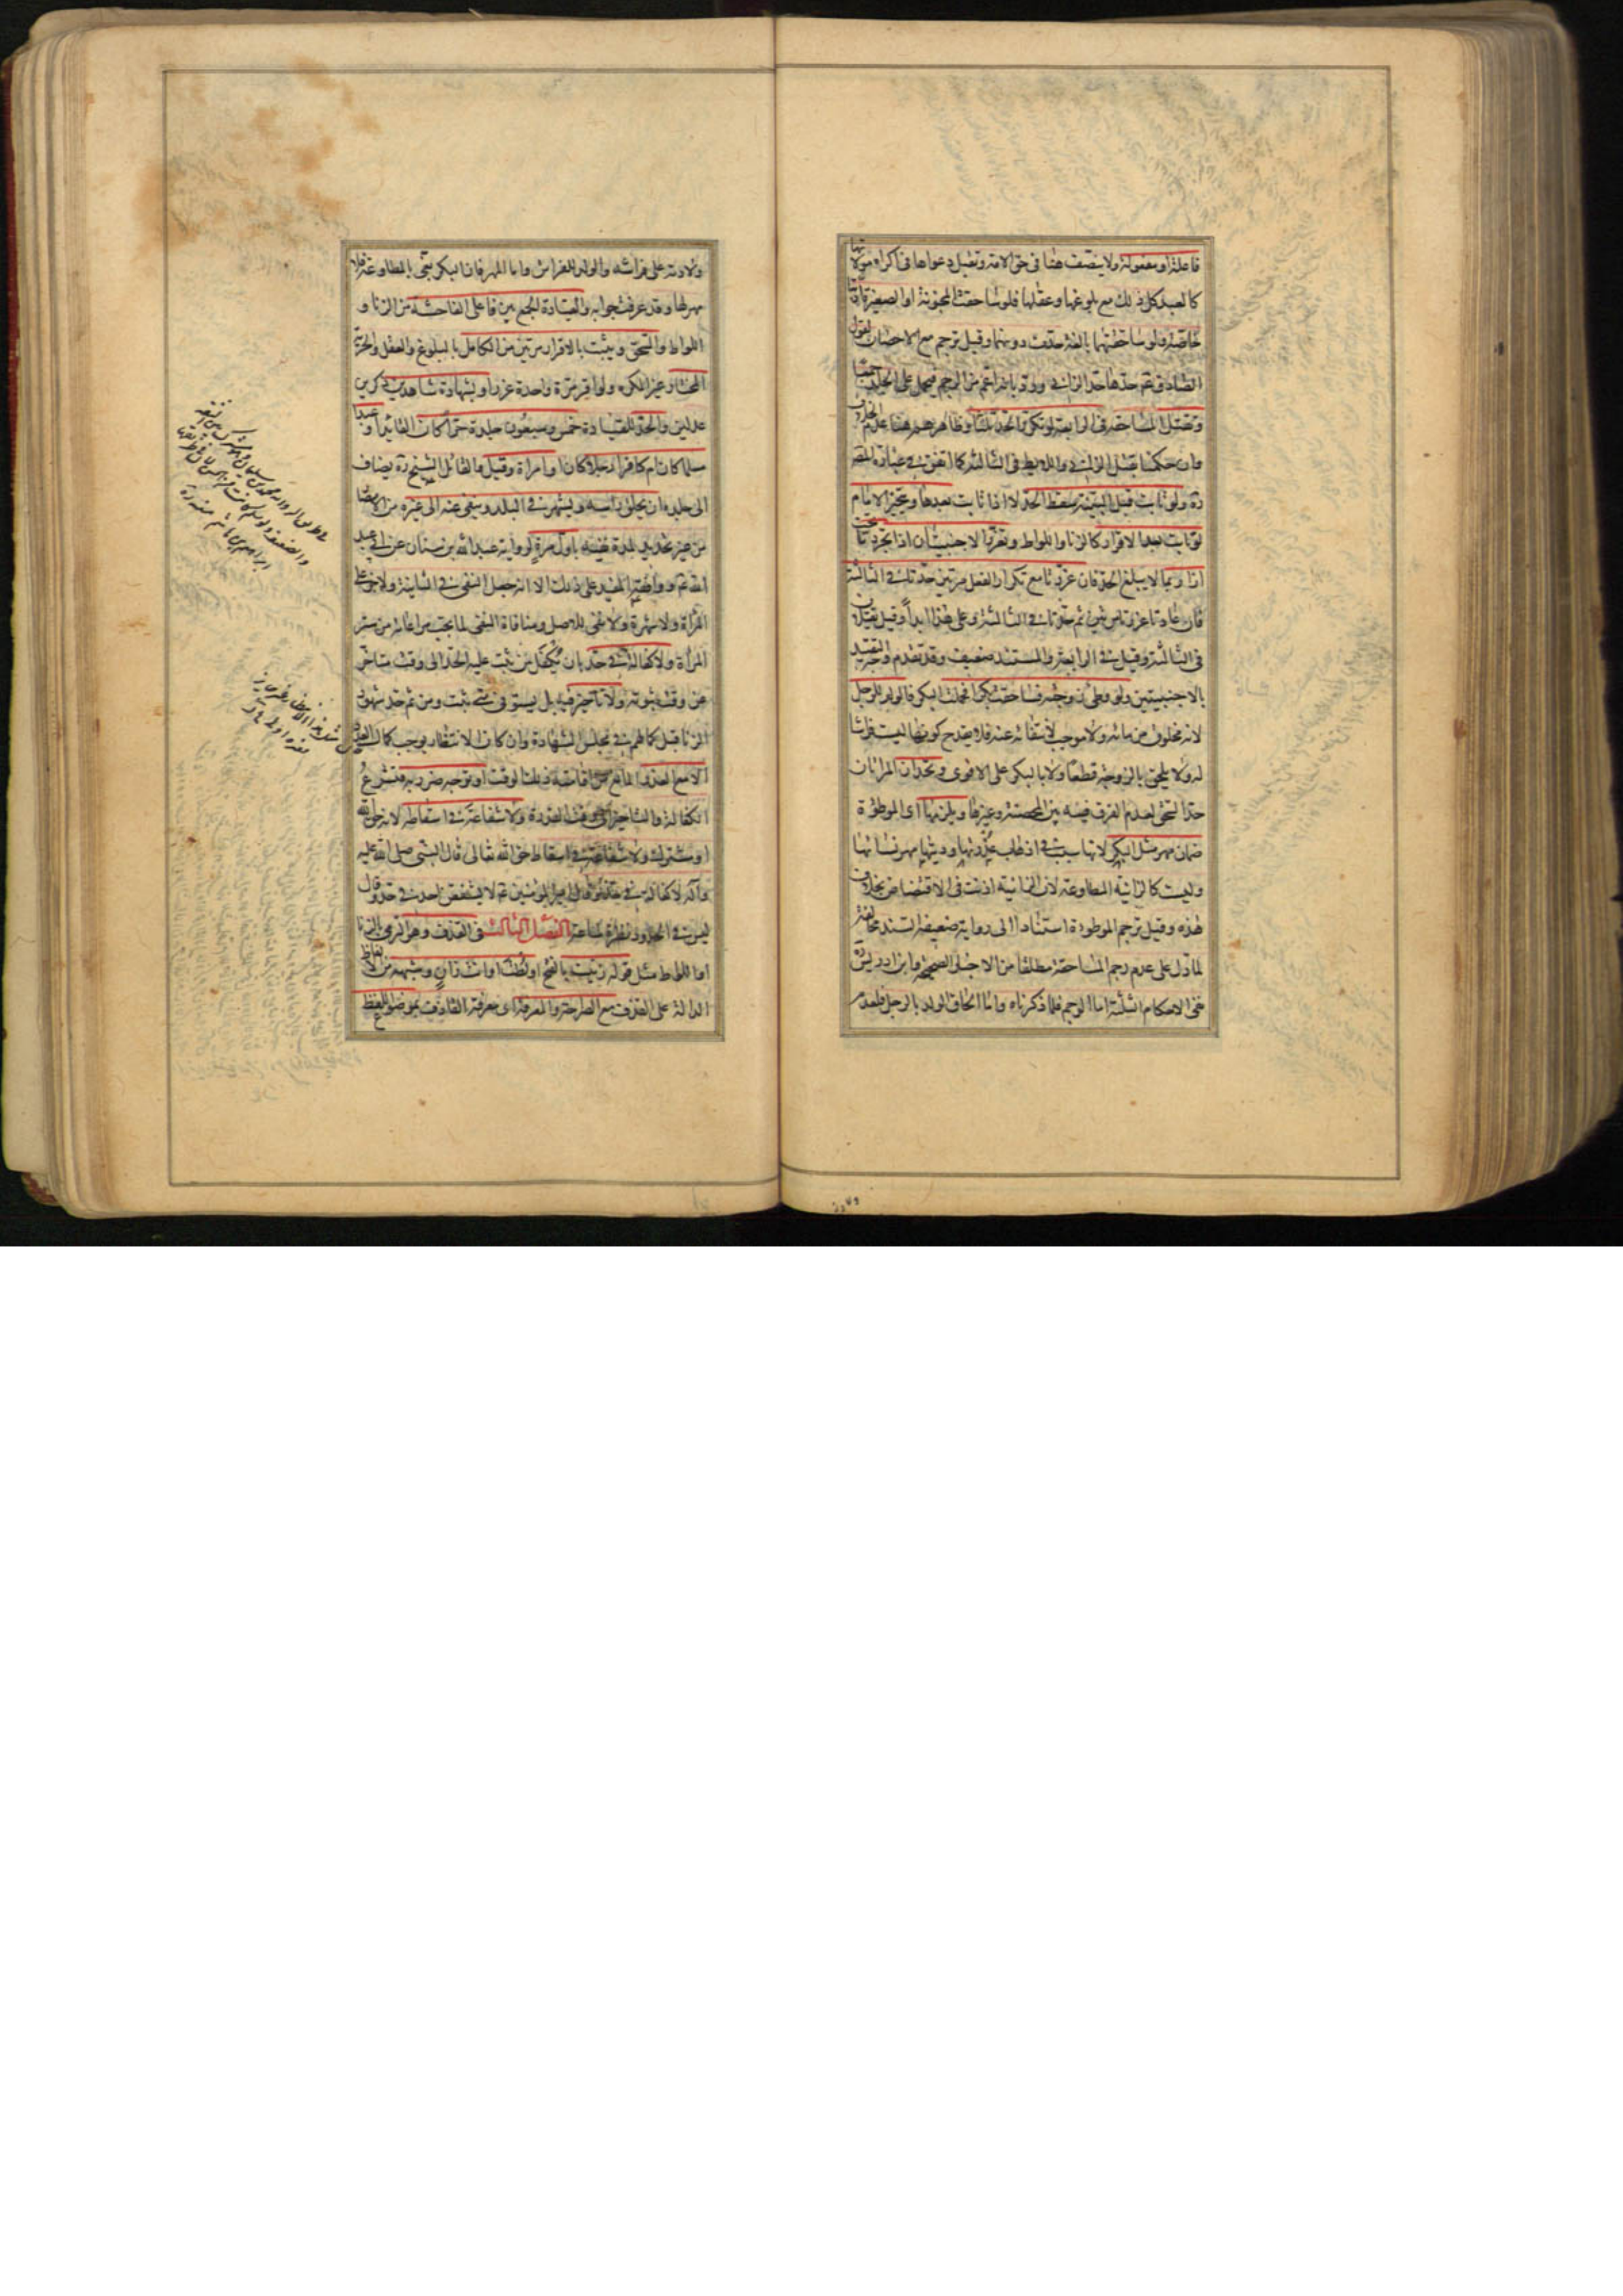 فاعلة او مفعولة ولا ينتصف هنا فى حق الامة وتقبل دعواها فى اكراه مولاتها
كالعبد كل ذلك مع بلوغها وعقلها فلو ساحقت المجنونة او الصغيرة ادبتا
خاصة ولو ساحقتهما بالغة حدت دونهما وقيل ترجم مع الاحصان لقول
الصادق عم حدها حد الزانى ورد بانه اعم من الرجم فيحمل على الجلد جمعا
وتقتل المساحقة فى الرابعة لو تكرر الحد ثلثا وظاهرهم هنا عدم الخلاف
وان حكمنا بقتل الزانى واللايط فى الثالثة كما اتفق فى عبارة المصّ
ره ولو تابت قبل البينة سقط الحد لا اذا تابت بعدها ويتخير الامام
لو تابت بعد الاقرار كالزنا واللواط وتعزر الاجنبيتان اذا تجردتا تحت
ازار بما لا يبلغ الحد فان عزرتا مع تكرار الفعل مرتين حدتا فى الثالثة
فان عادتا عزرتا مرتين ثم حدتا فى الثالثة وعلى هذا ابدا وقيل تقتلان
فى الثالثة وقيل فى الرابعة والمستند ضعيف وقد تقدم وجه التقييد
بالاجنبيتين ولو وطئ زوجته فساحقت بكرا فحملت البكر فالولد للرجل
لانه مخلوق من مائه ولا موجب لانتفائه عنه فلا يقدح كونها ليست فراشا
له ولا يلحق بالزوجة قطعا ولا بالبكر على الاقوى وتحدان المراتان
حد السحق لعدم الفرق فيه بين المحصنة وغيرها ويلزمها اى الموطؤة
ضمان مهر مثل البكر لانها سبب فى اذهاب عذرتها وديتها مهر نسائها
وليست كالزانية المطاوعة لان الزانية اذنت فى الاقتضاض بخلاف
هذه وقيل ترجم الموطوءة استنادا الى رواية ضعيفة السند مخالفة
لما دل على عدم رجم المساحقة مطلقا من الاخبار الصحيحة وابن ادريس ره
نفى الاحكام الثلثة اما الرجم فلما ذكرناه واما الحاق الولد بالرجل فلعدم
ولادته على فراشه والولد للفراش واما المهر فلان البكر بغى بالمطاوعة فلا
مهر لها وقد عرفت جوابه والقيادة الجمع بين فاعلى الفاحشة من الزنا و
اللواط والسحق ويثبت بالاقرار مرتين من الكامل بالبلوغ والعقل والحرية
المختار غير المكره ولو اقر مرة واحدة عزر او بشهادة شاهدين ذكرين
عدلين والحد للقيادة خمس وسبعون جلدة حرا كان القائد او عبدا
مسلما كان ام كافرا رجلا كان او امراة وقيل والقائل الشيخ ره يضاف
الى جلده ان يحلق راسه ويشهر فى البلد وينفى عنه الى غيره من الامصار
من غير تحديد لمدة نفيه باول مرة لرواية عبدالله بن سنان عن ابى عبد
الله عم ووافقه المفيد على ذلك الا انه جعل النفى فى الثانية ولا جز على
المراة ولا شهرة ولا نفى للاصل ومنافاة النفى لما يجب مراعاته من ستر
المراة ولا كفالة فى حد بان يكفل من ثبت عليه الحد الى وقت متاخر
عن وقت ثبوته ولا تاخير فيه بل يستوفى متى ثبت ومن ثم حد شهود
الزنا قبل كمالهم فى مجلس الشهادة وان كان الانتظار يوجب كمال العدد
الا مع العذر المانع من اقامته فى ذلك الوقت او توجه ضرر به فتشرع
الكفالة والتاخير الى وقت القدرة ولا شفاعة فى اسقاطه لانه حق الله
او مشترك ولا شفاعة فى اسقاط حق الله تعالى قال النبى صلى الله عليه
وآله لا كفالة فى حد وقال امير المؤمنين عم لا يشفعن احد فى حد وقال
ليس فى الحدود نظرة ساعة الفصل الثالث فى القذف وهو الرمى بالزنا
او اللواط مثل قوله زنيت بالفتح او لُطت او انت زانٍ وشبهه من الالفاظ
الدالة على القذف مع الصراحة والمعرفة اى معرفة القاذف بموضوع اللفظ